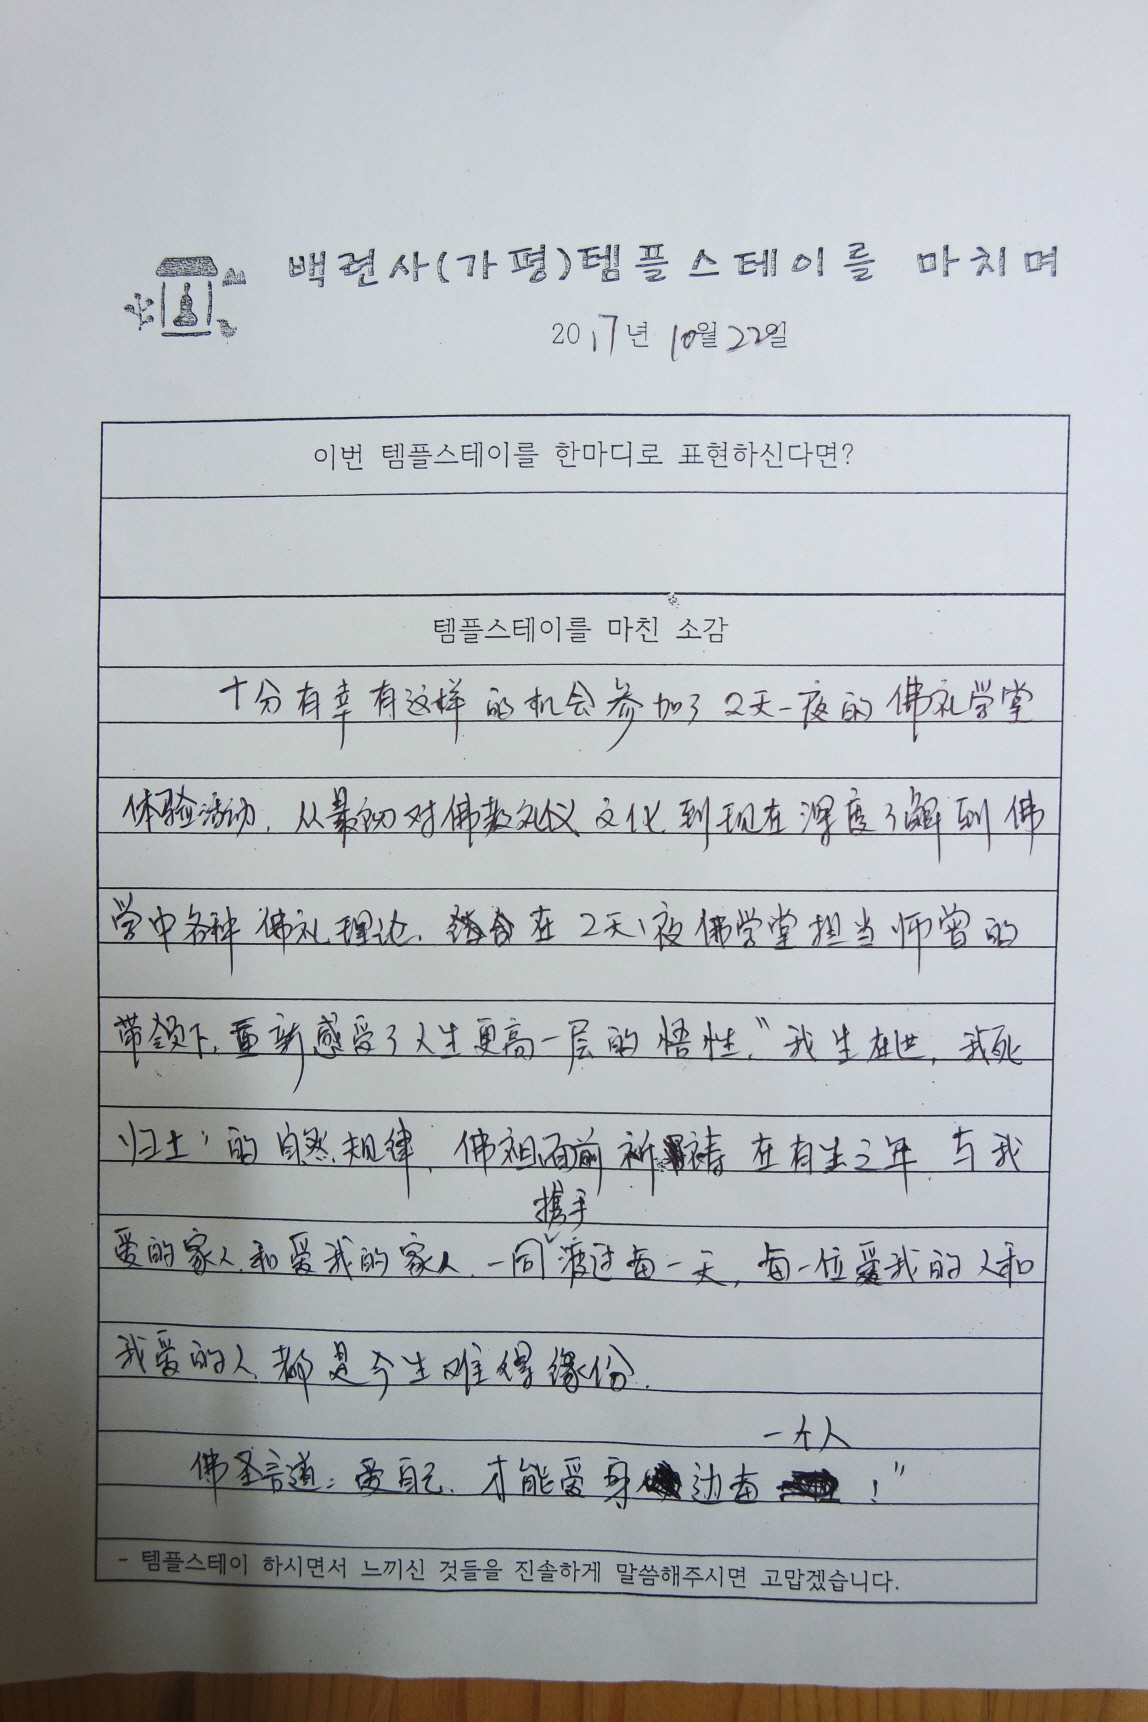 백련사(가평)템플스테이를 마치며
2017년 10월 22일
이번 템플스테이를 한마디로 표현하신다면?
템플스테이를 마친 소감
十分有幸有这样的机会参加了2天一夜的佛礼学堂
体验活动，从最初对佛教礼仪文化，到现在深度了解到佛
学中各种佛礼理论，结合在2天1夜佛学堂担当师曾的
带领下，重新感受了人生更高一层的悟性，"我生在世，我死
归土"的自然规律，佛祖面前祈祷在有生之年 与我
携手
爱的家人，和爱我的家人，一同渡过每一天，每一位爱我的人和
我爱的人，都是今生难得缘份．
一个人
佛圣言道：爱自己，才能爱身边每！"
- 템플스테이 하시면서 느끼신 것들을 진솔하게 말씀해주시면 고맙겠습니다.